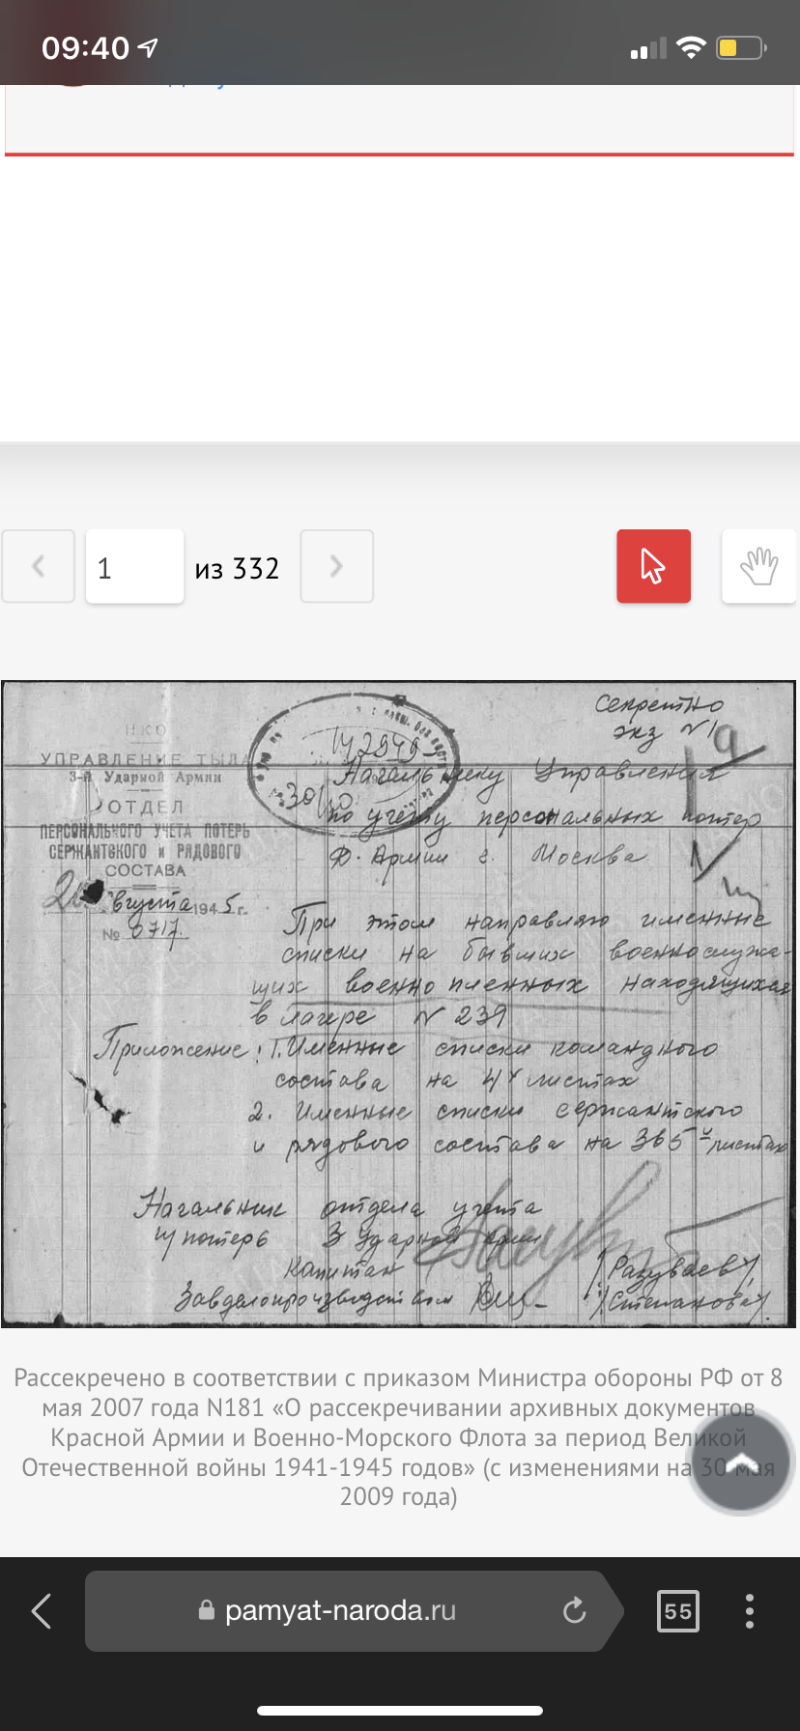 09:40
1 из 332
Секретно
экз №1
НКО
УПРАВЛЕНИЕ ТЫЛА
3-й Ударной Армии
ОТДЕЛ
ПЕРСОНАЛЬНОГО УЧЕТА ПОТЕРЬ
СЕРЖАНТСКОГО и РЯДОВОГО
СОСТАВА
августа 1945 г.
№ 0717.
Начальнику Управления
по учету персональных потер
Кр. Армии г. Москва
При этом направляю именные
списки на бывших военнослужа-
щих военнопленных находящихся
в лагере № 239
Приложение: 1. Именные списки командного
состава на 4х листах
2. Именные списки сержантского
и рядового состава на 365 и листах
Начальник отдела учета
п/потерь 3 Ударной Арми
Капитан /Разуваев/
Завделопроизводством /Степанова/.
Рассекречено в соответствии с приказом Министра обороны РФ от 8
мая 2007 года N181 «О рассекречивании архивных документов
Красной Армии и Военно-Морского Флота за период Великой
Отечественной войны 1941-1945 годов» (с изменениями на 30 мая
2009 года)
pamyat-naroda.ru
55